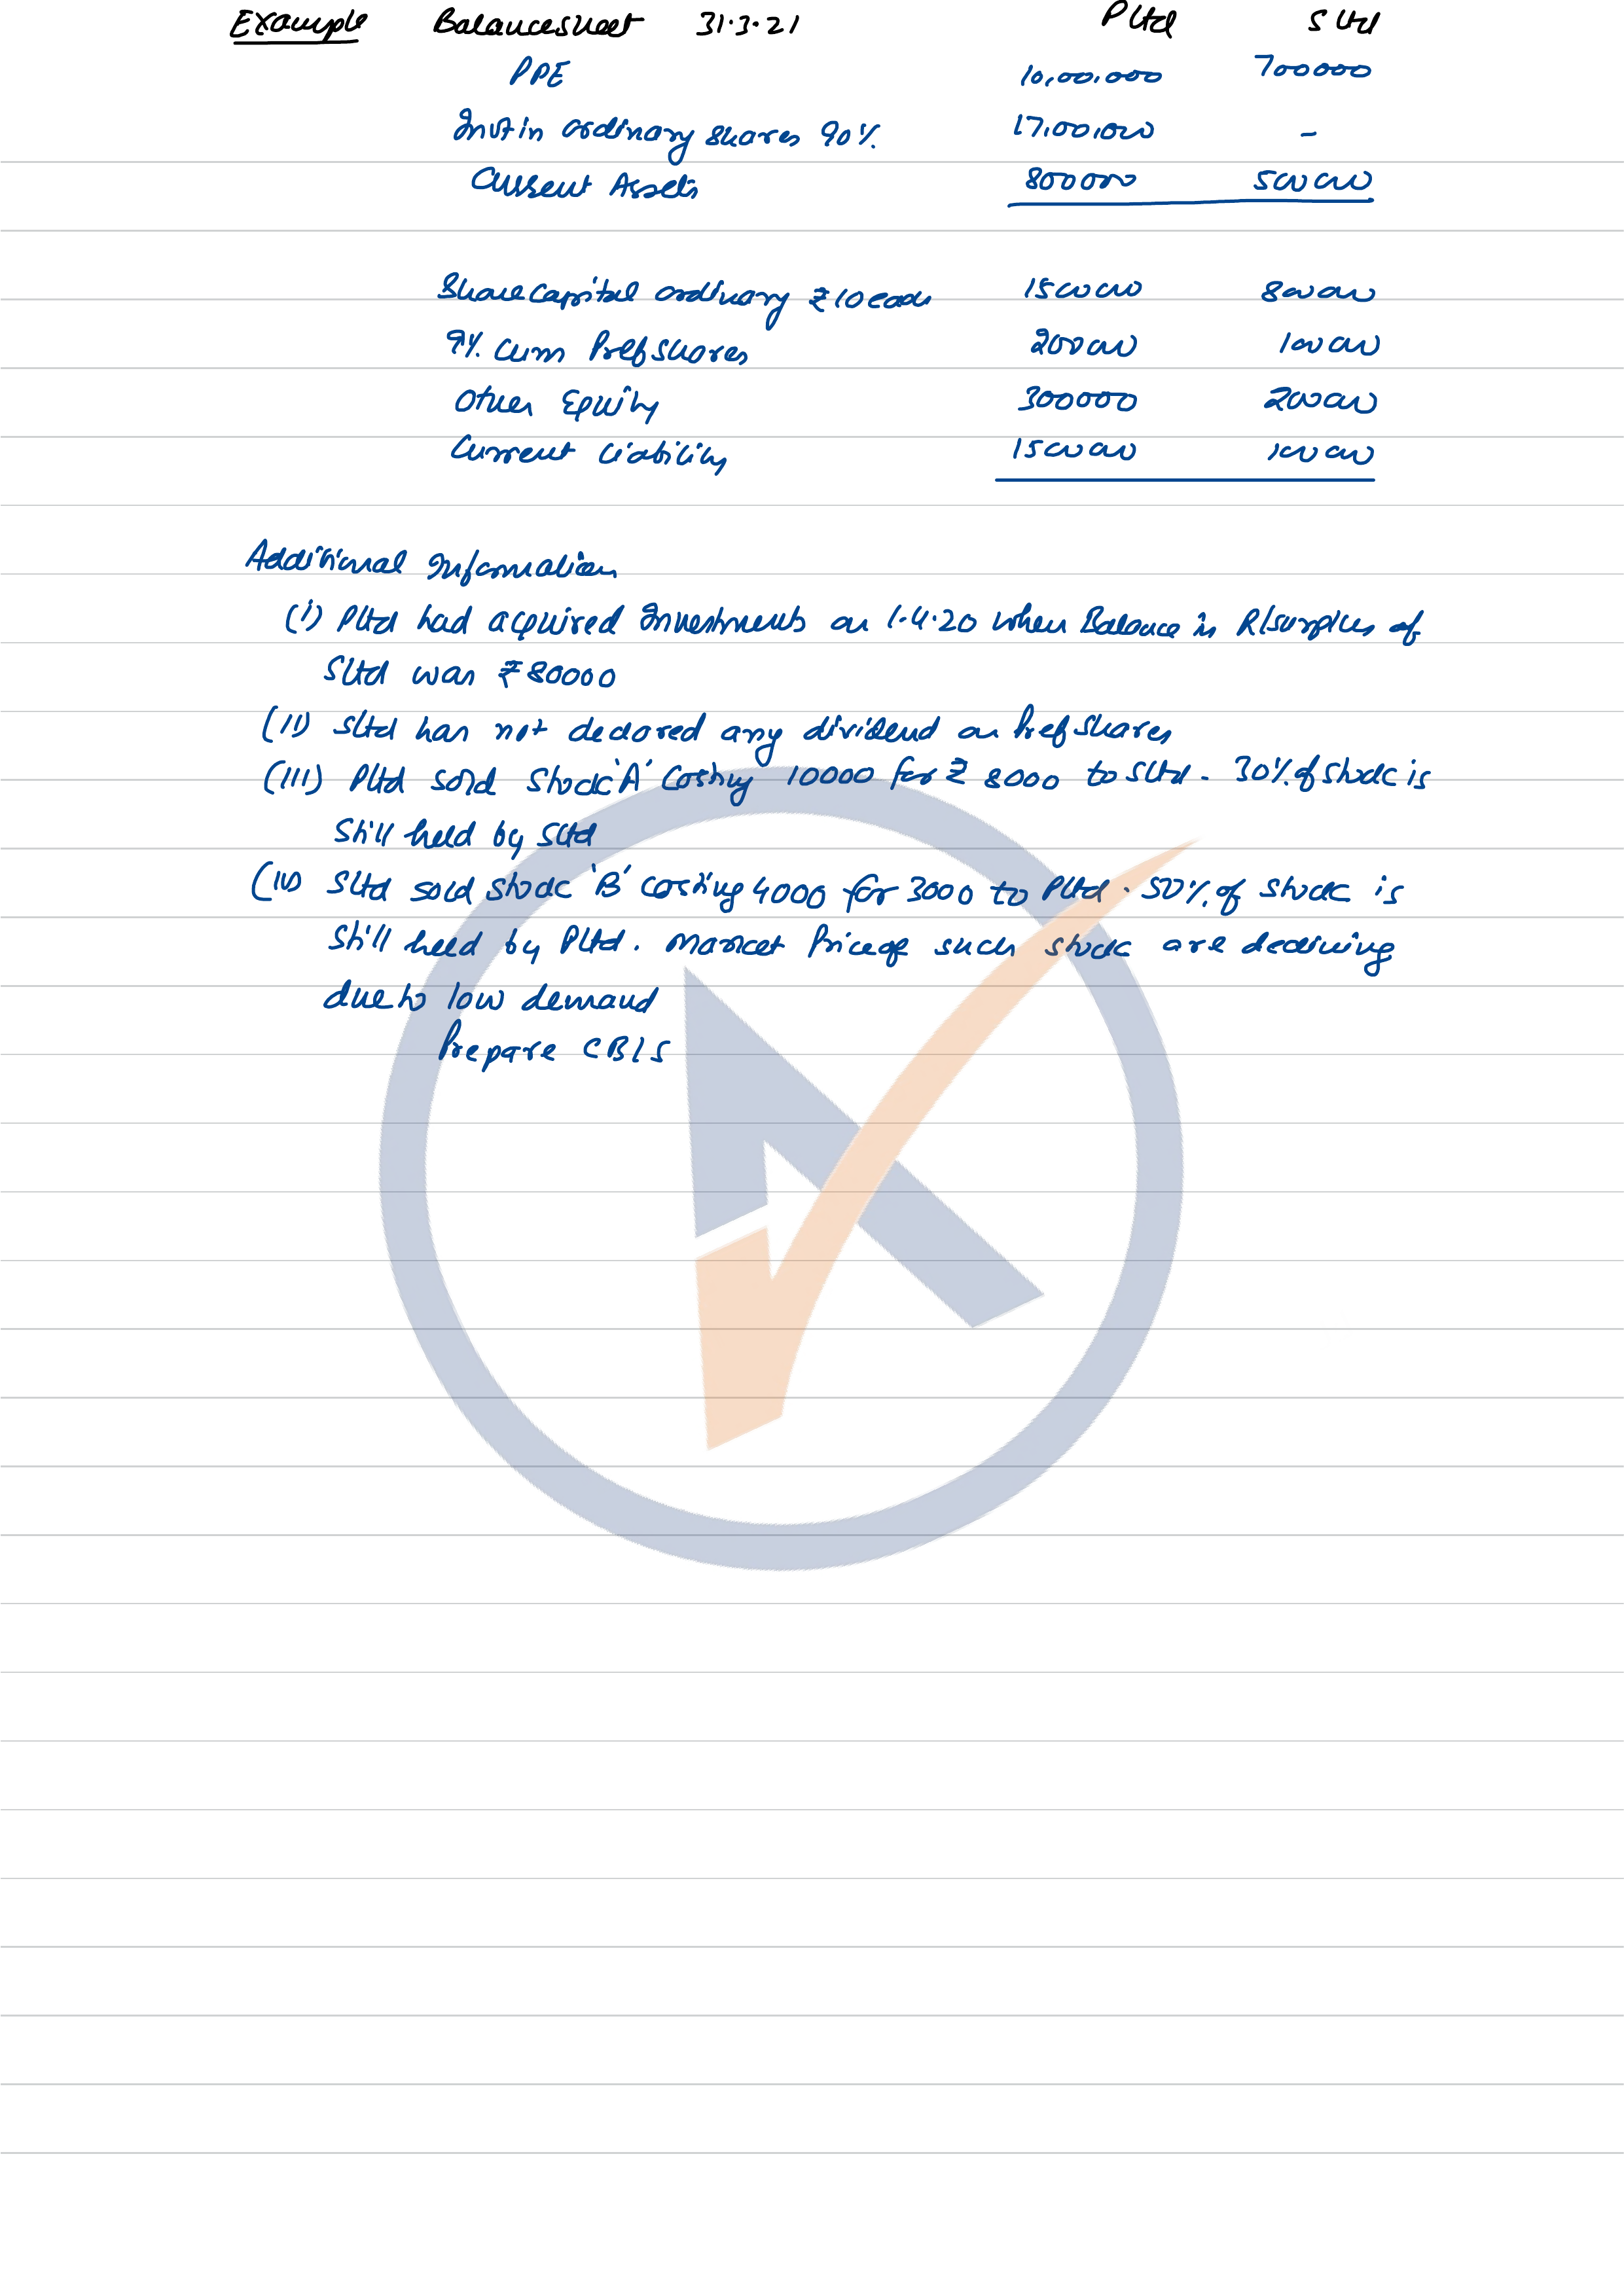 Example Balancesheet 31.3.21 P Ltd S Ltd
PPE 10,00,000 700000
Invt in ordinary shares 90% 17,00,000 -
Current Assets 800000 500000
Share capital ordinary ₹10 each 1500000 800000
9% Cum Pref shares 200000 100000
Other Equity 300000 200000
Current Liability 1500000 100000
Additional Information
(i) P Ltd had acquired Investments on 1.4.20 when Balance in R/surplus of
S Ltd was ₹80000
(ii) S Ltd has not declared any dividend on Pref shares
(iii) P Ltd sold Stock 'A' Costing 10000 for ₹ 8000 to S Ltd - 30% of stock is
Still held by S Ltd
(iv) S Ltd sold stock 'B' costing 4000 for 3000 to P Ltd. 50% of stock is
still held by P Ltd. Market Price of such stock are declining
due to low demand
Prepare CB/S